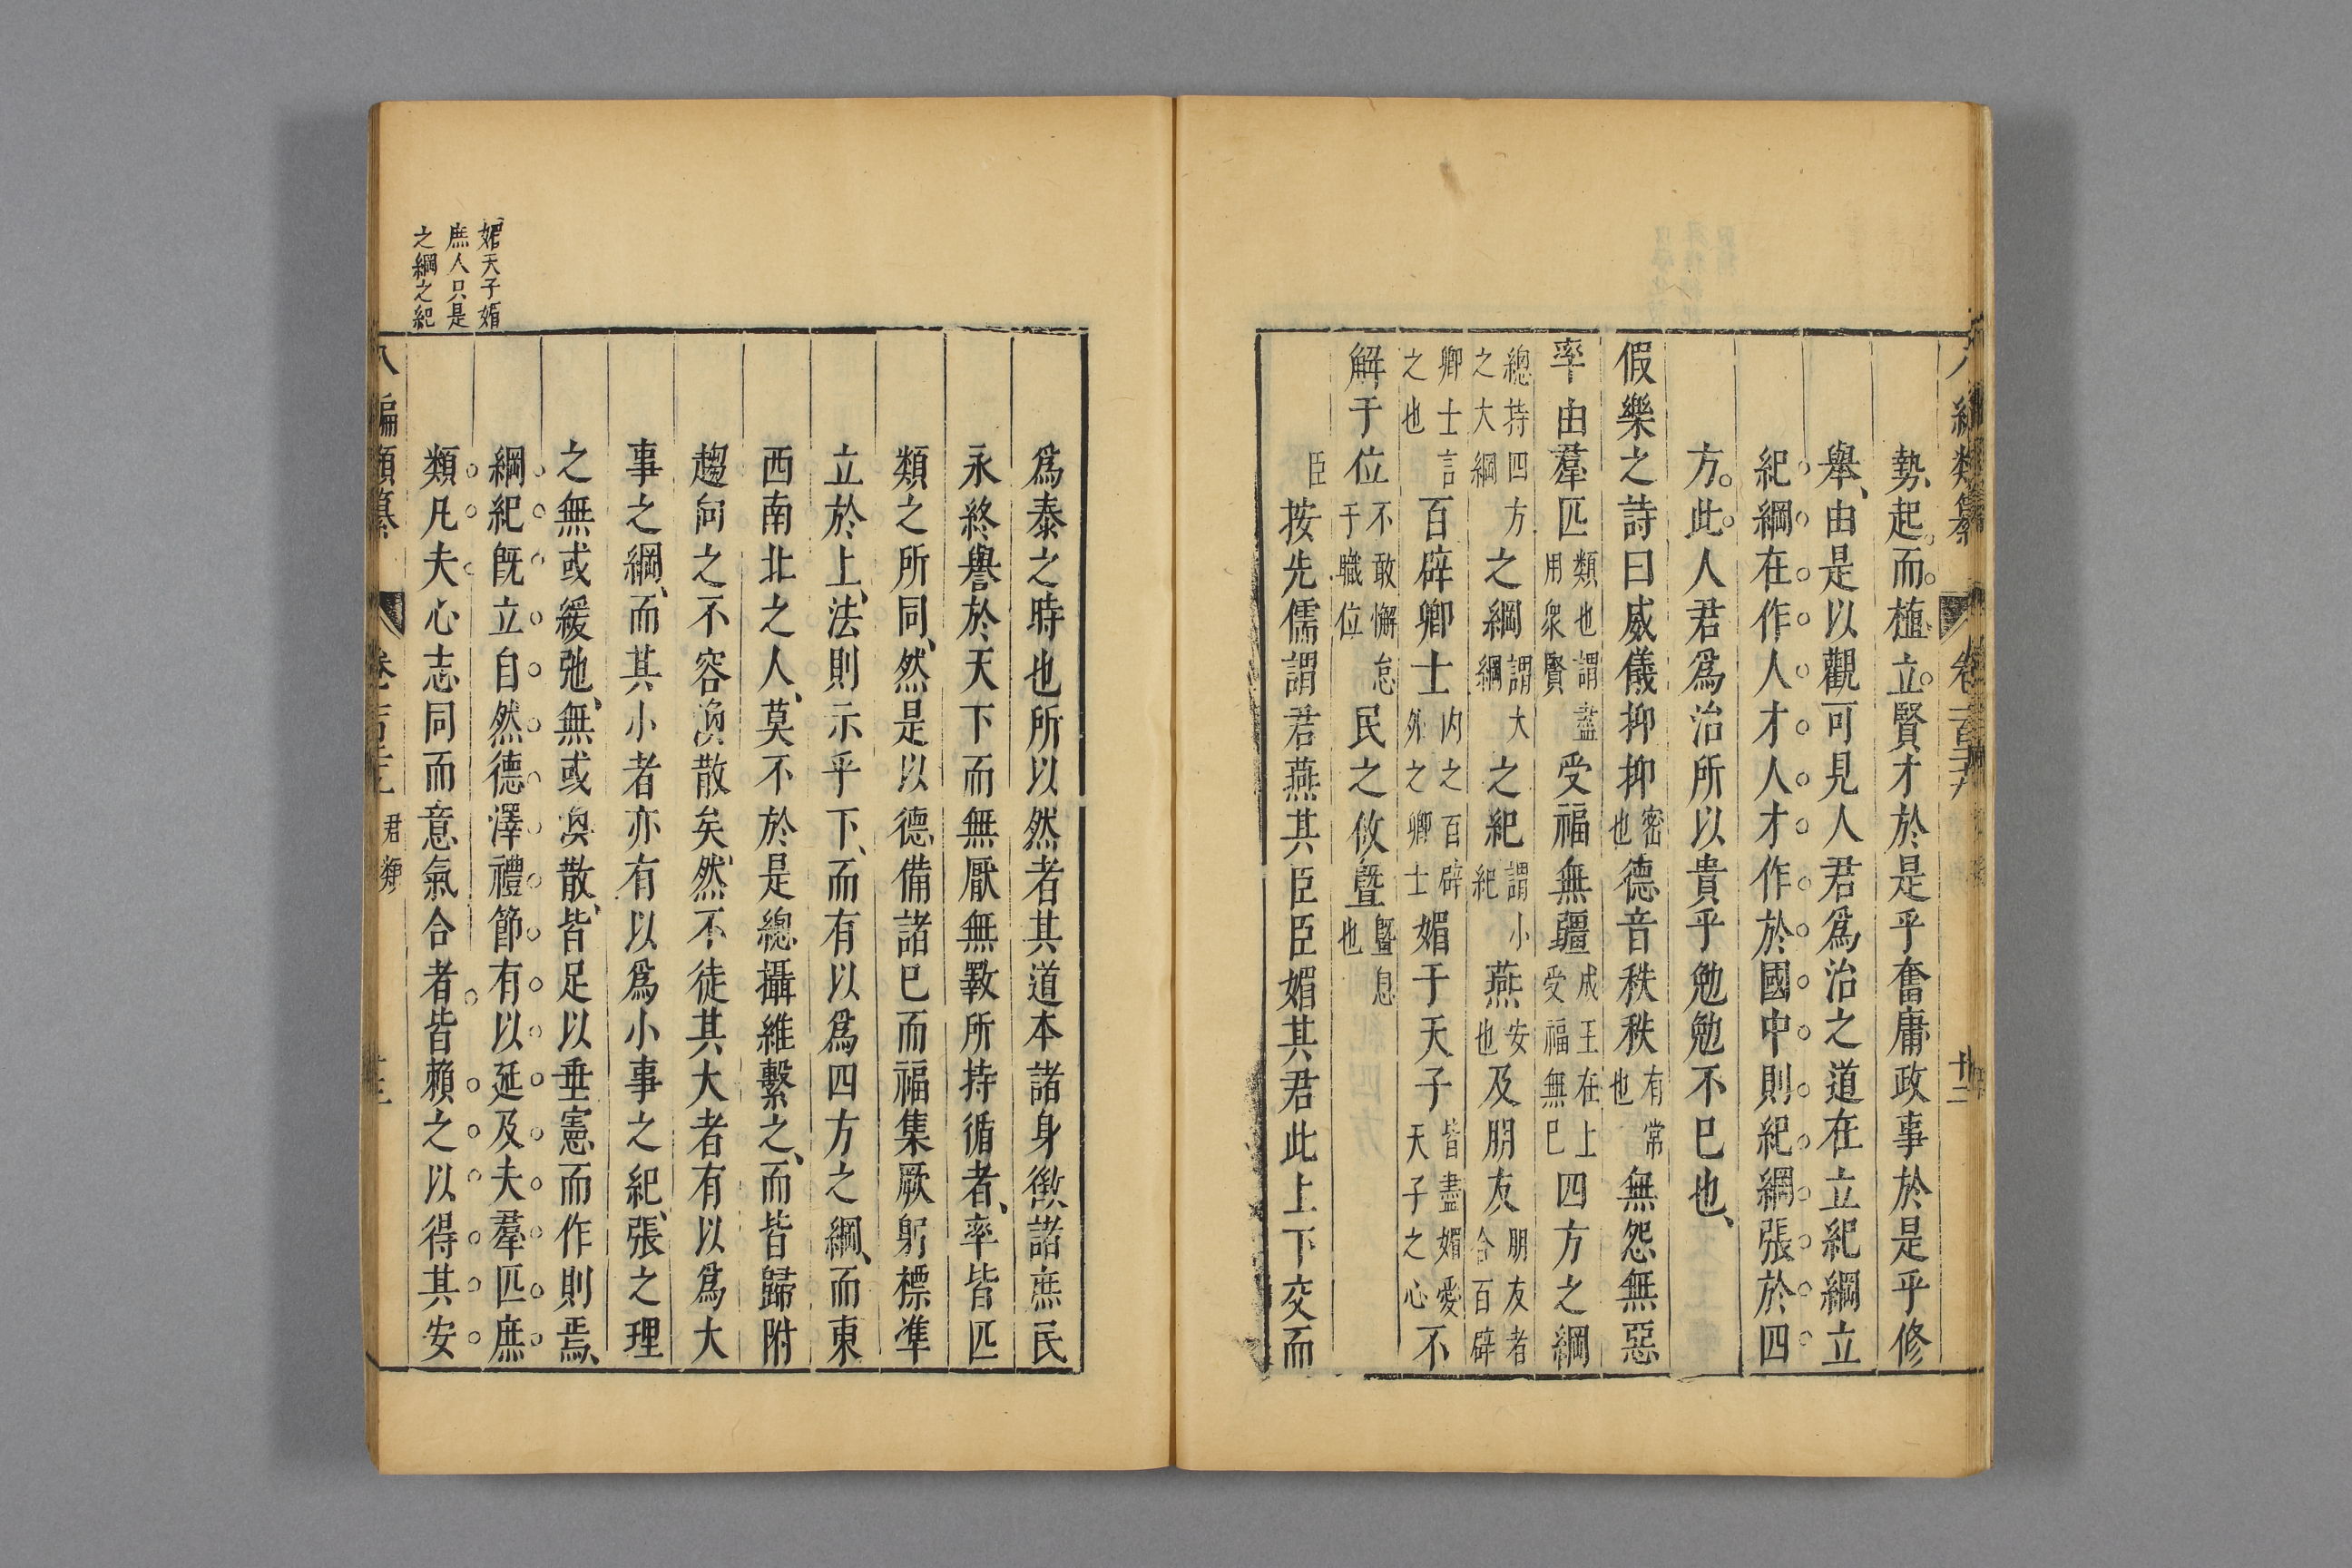 八編類纂 卷一百三十八 十二
勢起而植立賢才於是乎奮庸政事於是乎修
舉由是以觀可見人君爲治之道在立紀綱立
紀綱在作人才人才作於國中則紀綱張於四
方此人君爲治所以貴乎勉勉不已也
假樂之詩曰威儀抑抑密也德音秩秩有常也無怨無惡
率由羣匹類也謂盡用衆賢受福無疆成王在上受福無已四方之綱
總持四方之大綱之綱謂大綱之紀謂小紀燕安也及朋友朋友者合百辟
卿士言之也百辟卿士内之百辟外之卿士媚于天子皆盡媚愛天子之心不
解于位不敢懈怠于職位民之攸墍墍息也
臣按先儒謂君燕其臣臣媚其君此上下交而
爲泰之時也所以然者其道本諸身徵諸庶民
永終譽於天下而無厭無斁所持循者率皆匹
類之所同然是以德備諸已而福集厥躬標準
立於上法則示乎下而有以爲四方之綱而東
西南北之人莫不於是總攝維繫之而皆歸附
趨向之不容渙散矣然不徒其大者有以爲大
事之綱而其小者亦有以爲小事之紀張之理
之無或緩弛無或渙散皆足以垂憲而作則焉
綱紀旣立自然德澤禮節有以延及夫羣匹庶
類凡夫心志同而意氣合者皆賴之以得其安
八編類纂 君類
媚天子媚
庶人只是
之綱之紀